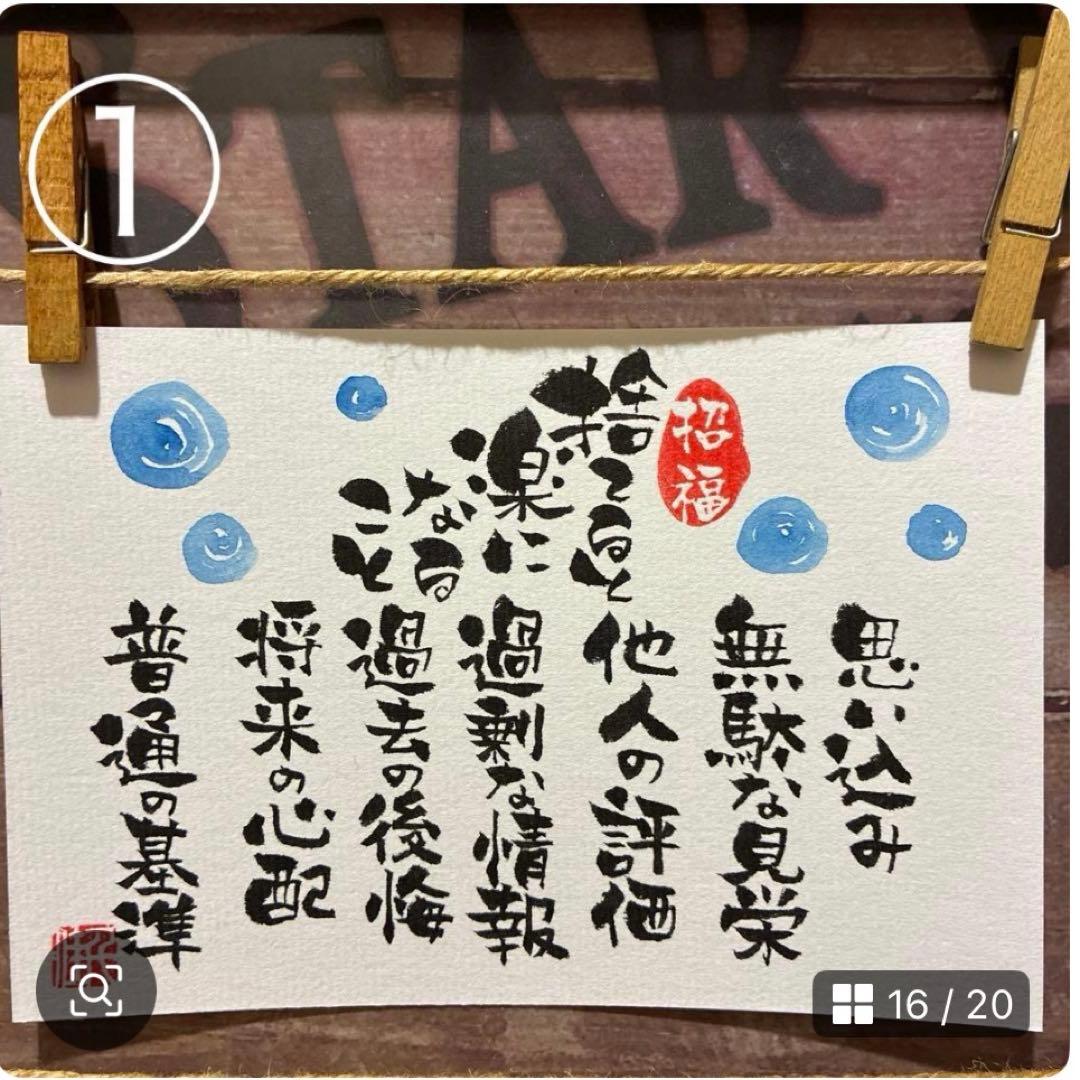 ①
STAR
招福
捨てると
楽に
なる
こと
思い込み
無駄な見栄
他人の評価
過剰な情報
過去の後悔
将来の心配
普通の基準
16 / 20